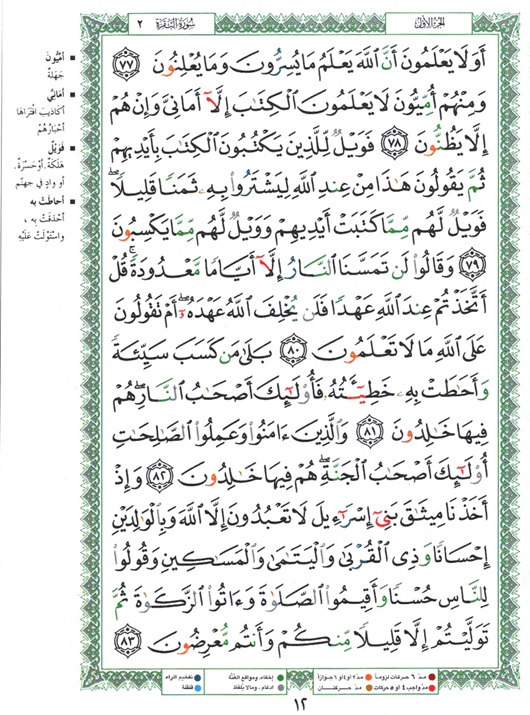 الجزء الأول
سورة البقرة ٢
أَوَلَا يَعْلَمُونَ أَنَّ ٱللَّهَ يَعْلَمُ مَا يُسِرُّونَ وَمَا يُعْلِنُونَ ٧٧
وَمِنْهُمْ أُمِّيُّونَ لَا يَعْلَمُونَ ٱلْكِتَٰبَ إِلَّآ أَمَانِىَّ وَإِنْ هُمْ
إِلَّا يَظُنُّونَ ٧٨ فَوَيْلٌ لِّلَّذِينَ يَكْتُبُونَ ٱلْكِتَٰبَ بِأَيْدِيهِمْ
ثُمَّ يَقُولُونَ هَٰذَا مِنْ عِندِ ٱللَّهِ لِيَشْتَرُوا۟ بِهِۦ ثَمَنًا قَلِيلًا ۖ
فَوَيْلٌ لَّهُم مِّمَّا كَتَبَتْ أَيْدِيهِمْ وَوَيْلٌ لَّهُم مِّمَّا يَكْسِبُونَ
٧٩ وَقَالُوا۟ لَن تَمَسَّنَا ٱلنَّارُ إِلَّآ أَيَّامًا مَّعْدُودَةً ۚ قُلْ
أَتَّخَذْتُمْ عِندَ ٱللَّهِ عَهْدًا فَلَن يُخْلِفَ ٱللَّهُ عَهْدَهُۥٓ ۖ أَمْ تَقُولُونَ
عَلَى ٱللَّهِ مَا لَا تَعْلَمُونَ ٨٠ بَلَىٰ مَن كَسَبَ سَيِّئَةً
وَأَحَٰطَتْ بِهِۦ خَطِيٓـَٔتُهُۥ فَأُو۟لَٰٓئِكَ أَصْحَٰبُ ٱلنَّارِ ۖ هُمْ
فِيهَا خَٰلِدُونَ ٨١ وَٱلَّذِينَ ءَامَنُوا۟ وَعَمِلُوا۟ ٱلصَّٰلِحَٰتِ
أُو۟لَٰٓئِكَ أَصْحَٰبُ ٱلْجَنَّةِ ۖ هُمْ فِيهَا خَٰلِدُونَ ٨٢ وَإِذْ
أَخَذْنَا مِيثَٰقَ بَنِىٓ إِسْرَٰٓءِيلَ لَا تَعْبُدُونَ إِلَّا ٱللَّهَ وَبِٱلْوَٰلِدَيْنِ
إِحْسَانًا وَذِى ٱلْقُرْبَىٰ وَٱلْيَتَٰمَىٰ وَٱلْمَسَٰكِينِ وَقُولُوا۟
لِلنَّاسِ حُسْنًا وَأَقِيمُوا۟ ٱلصَّلَوٰةَ وَءَاتُوا۟ ٱلزَّكَوٰةَ ثُمَّ
تَوَلَّيْتُمْ إِلَّا قَلِيلًا مِّنكُمْ وَأَنتُم مُّعْرِضُونَ ٨٣
أُمِّيُّونَ
جَهَلَةٌ
أَمَانِيَّ
أكاذيبَ افْتَرَاها
أحْبَارُهُمْ
فَوَيْلٌ
هَلَكَةٌ. أوْ حَسْرَةٌ.
أو وادٍ في جهنم
أحاطَتْ به
أحْدَقَتْ به ،
واسْتَوْلَتْ عَلَيْهِ
مدّ ٦ حركات لزوماً
مدّ ٢ أو ٤ أو ٦ جوازاً
إخفاء، ومواقع الغُنَّة
تفخيم الراء
مدّ واجب ٤ أو ٥ حركات
مدّ حركتان
إدغام ، وما لا يُلفَظ
قلقلة
١٢